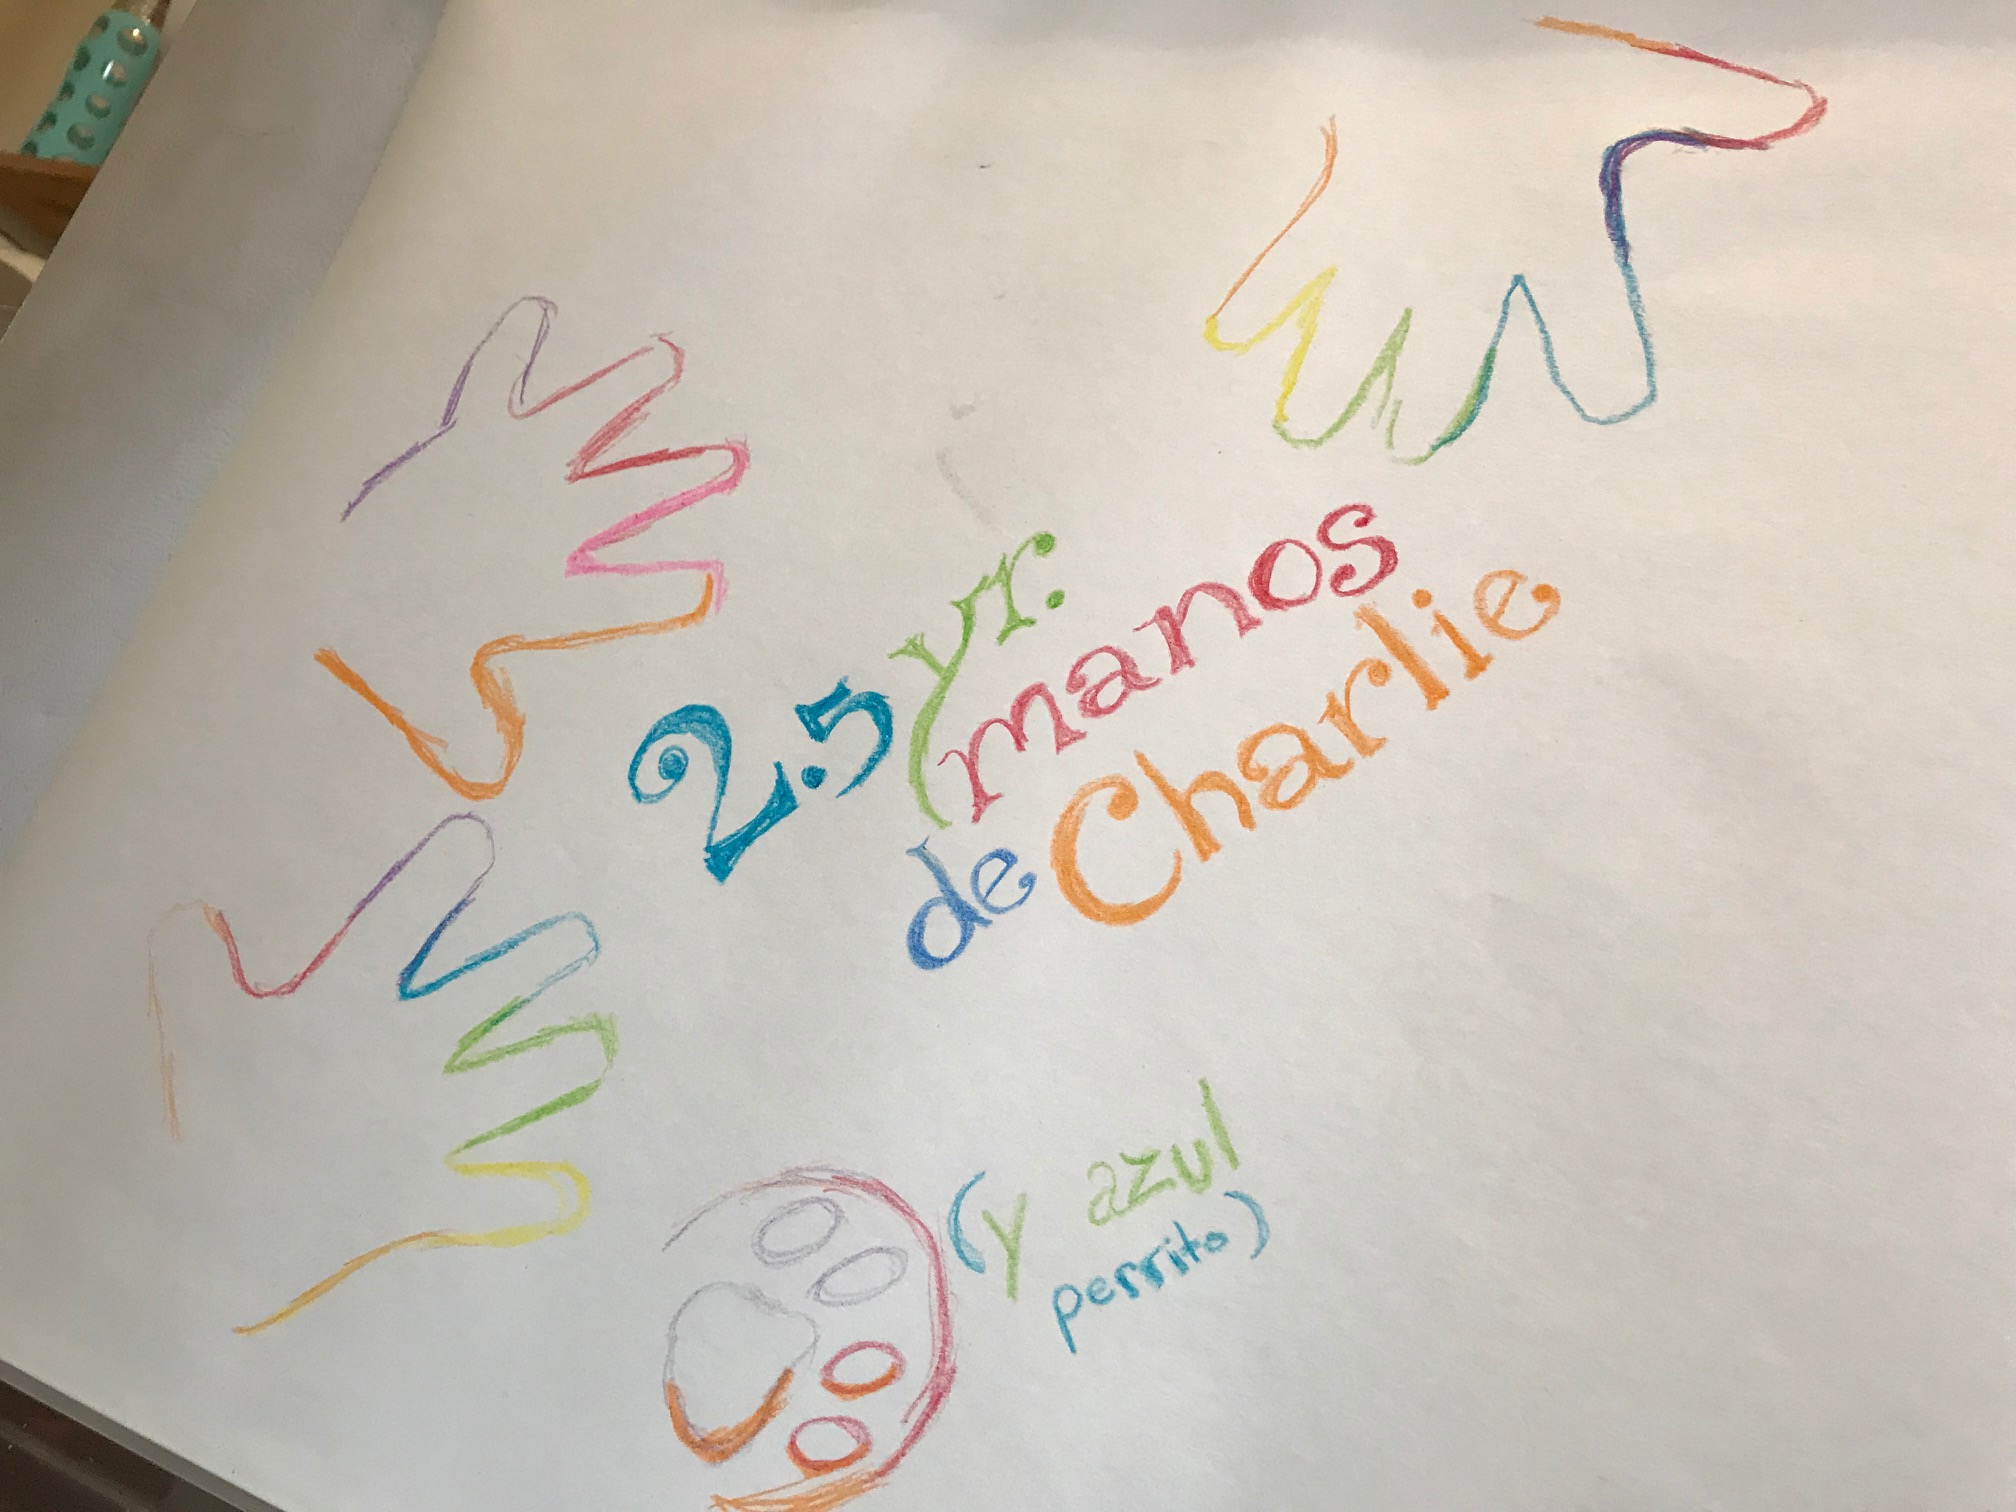 2.5 yr.
manos
de Charlie
(y azul
perrito)